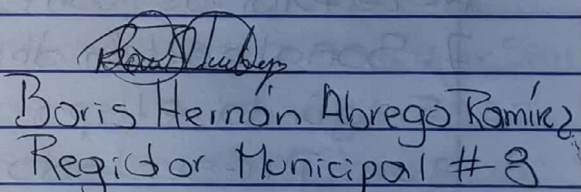 Boris Hernán Abrego Ramírez
Regidor Municipal #8